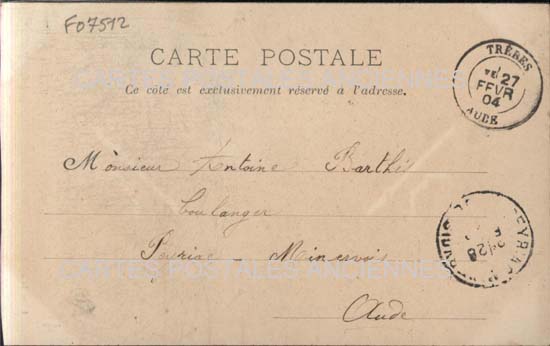 F07512
CARTE POSTALE
Ce côté est exclusivement réservé à l'adresse.
TRÈBES
27
FEVR
04
AUDE
CARTES POSTALES ANCIENNES
Monsieur Antoine Barthès
boulanger
Peyriac Minervois
CARTES POSTALES ANCIENNES
Aude
28